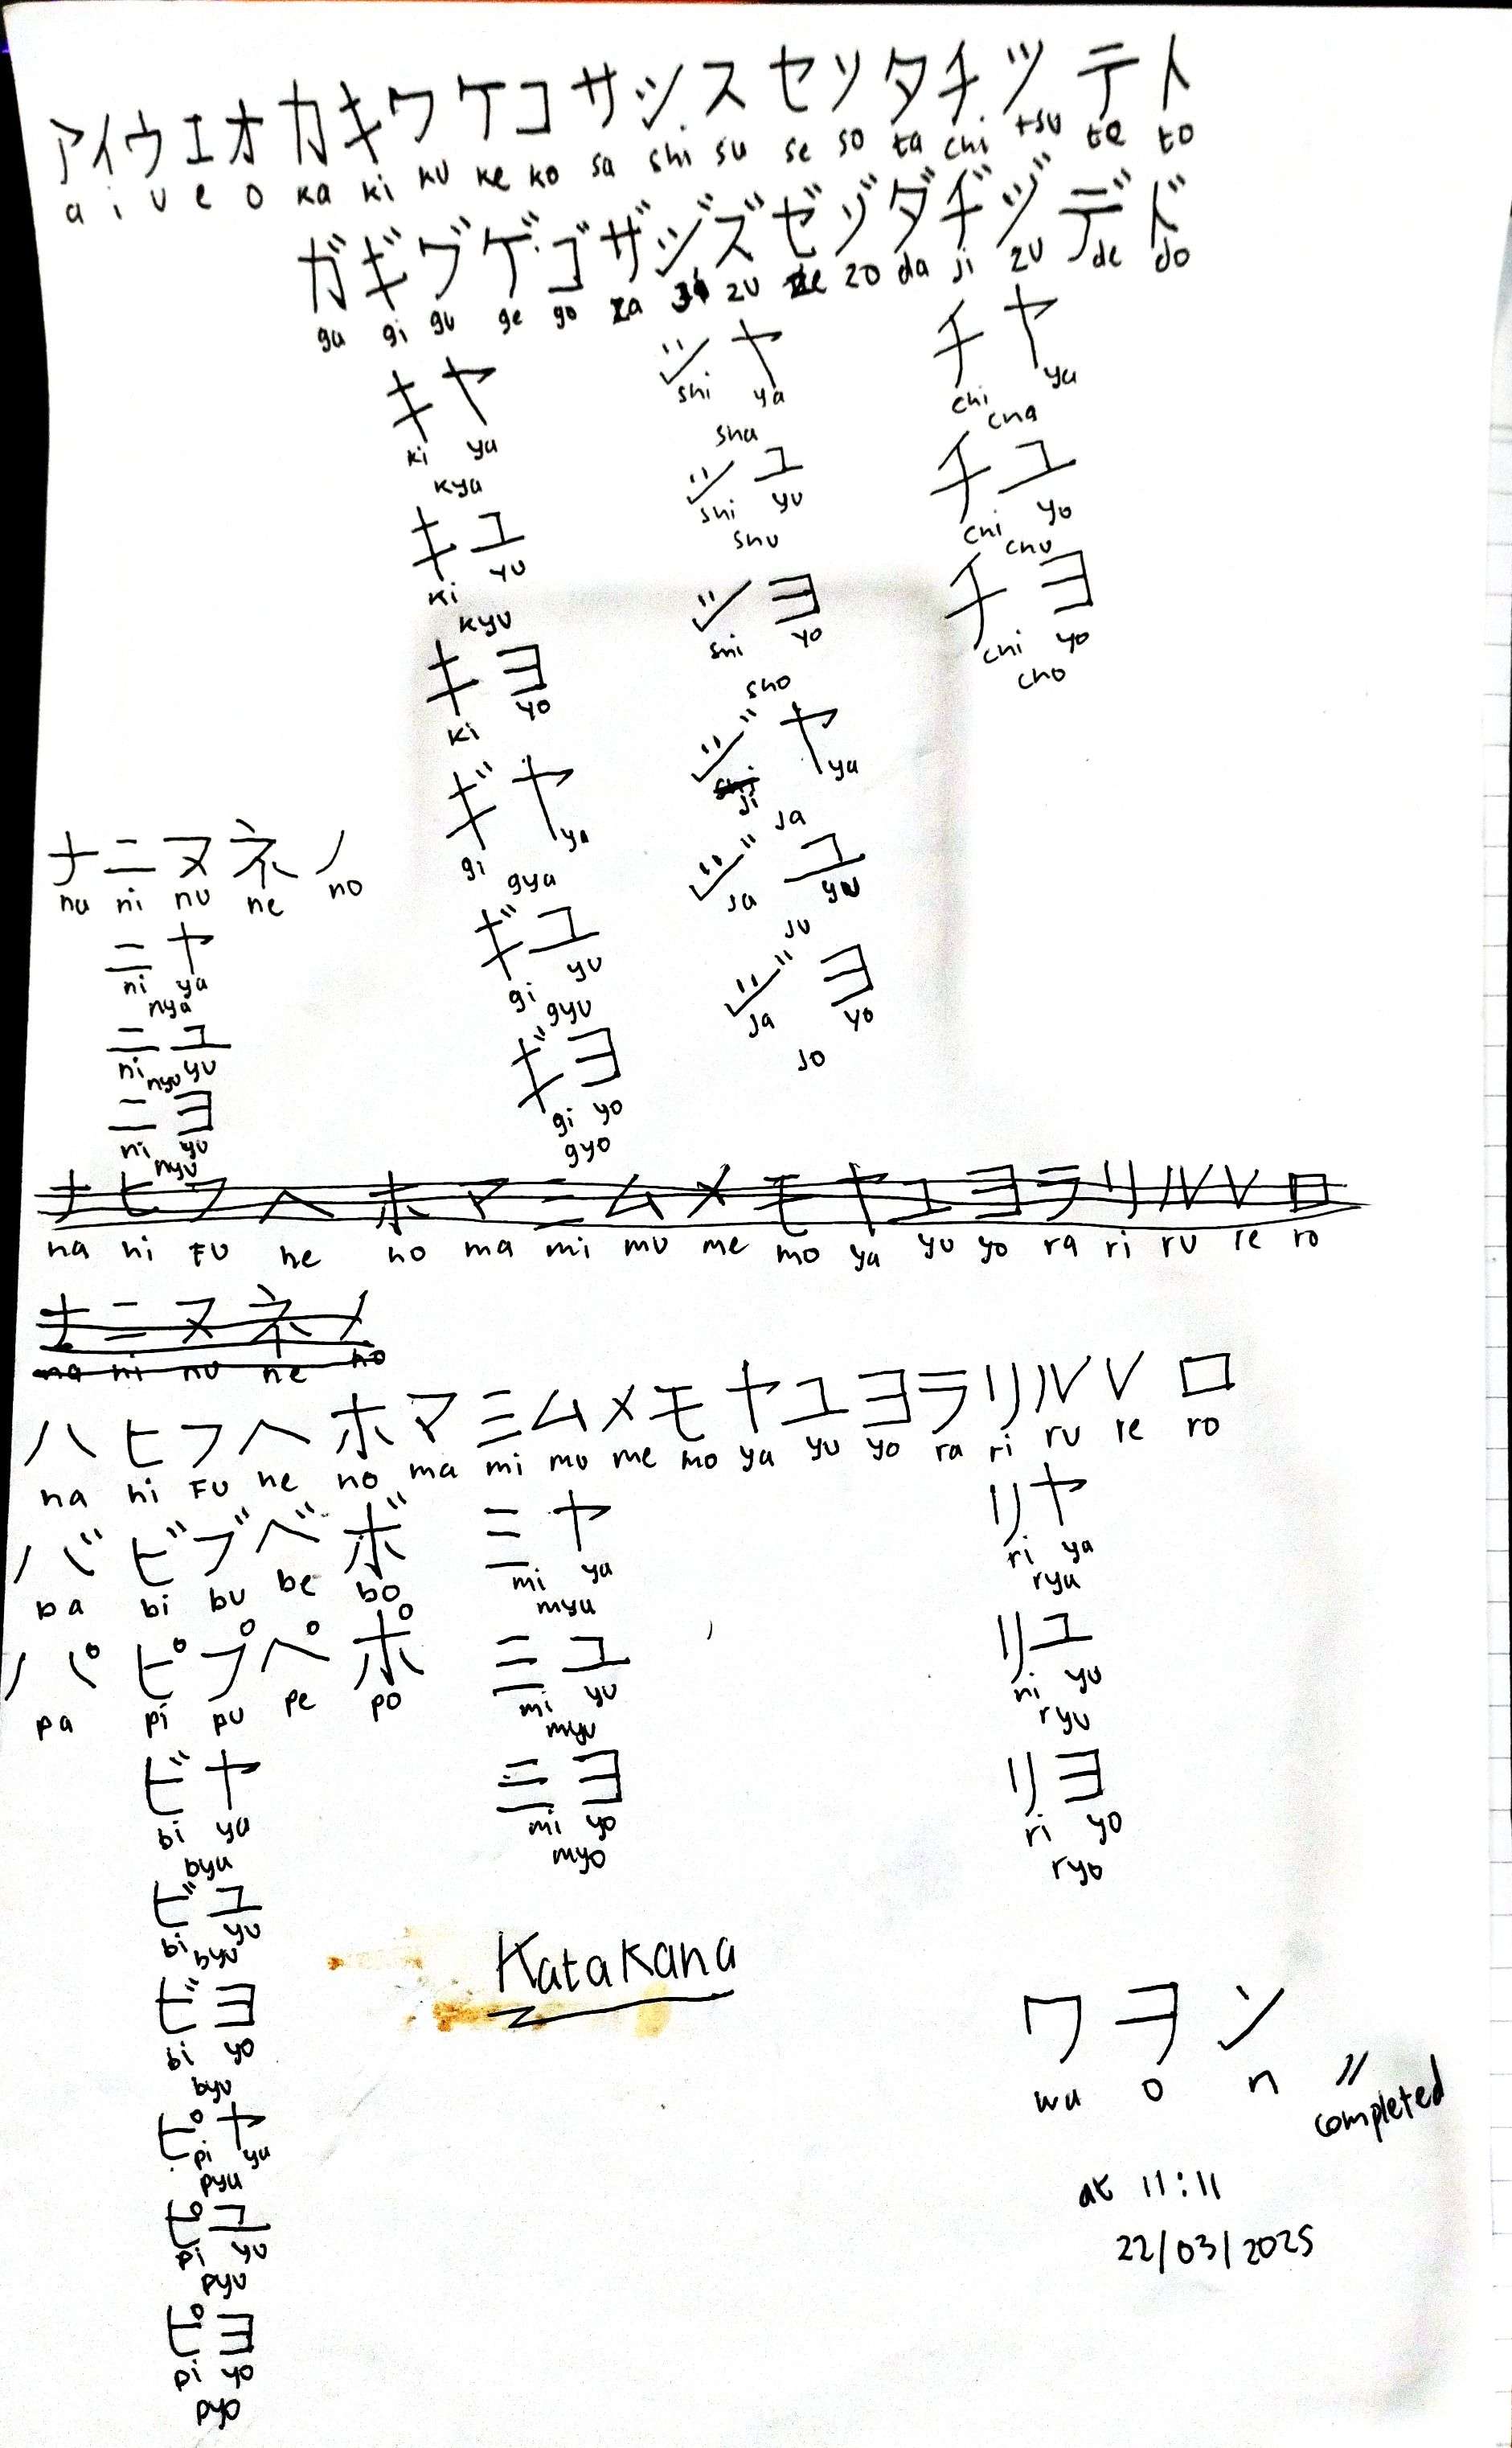 アイウエオカキクケコサシスセソタチツテト
a i u e o ka ki ku ke ko sa shi su se so ta chi tsu te to
ガギグゲゴザジズゼゾダヂヅデド
ga gi gu ge go za ji zu ze zo da ji zu de do
キヤ
ki ya
kya
キユ
ki yu
kyu
キヨ
ki yo
ギヤ
gi ya
gya
ギユ
gi yu
gyu
ギヨ
gi yo
gyo
シヤ
shi ya
sha
シユ
shi yu
shu
シヨ
shi yo
sho
ジヤ
ji ya
ja
ジユ
ja yu
ju
ジヨ
ja yo
jo
チヤ
chi ya
cha
チユ
chi yo
chu
チヨ
chi yo
cho
ナニヌネノ
na ni nu ne no
ニヤ
ni ya
nya
ニユ
ni yu
nyu
ニヨ
ni yu
nyu
ナヒフヘホマミムメモヤユヨラリルレロ
ha hi FU he ho ma mi mu me mo ya yu yo ra ri ru re ro
ナニヌネノ
na ni nu ne no
ハヒフヘホマミムメモヤユヨラリルレロ
ha hi FU he ho ma mi mu me mo ya yu yo ra ri ru re ro
バビブベボ
ba bi bu be bo
パピプペポ
pa pi pu pe po
ビヤ
bi ya
bya
ビユ
bi yu
byu
ビヨ
bi yo
byu
ピヤ
pi ya
pya
ピユ
pi yu
pyu
ピヨ
pi yo
pyo
ミヤ
mi ya
mya
ミユ
mi yu
myu
ミヨ
mi yo
myo
リヤ
ri ya
rya
リユ
ri yu
ryu
リヨ
ri yo
ryo
Katakana
ワヲン
wa o n //
completed
at 11:11
22/03/2025